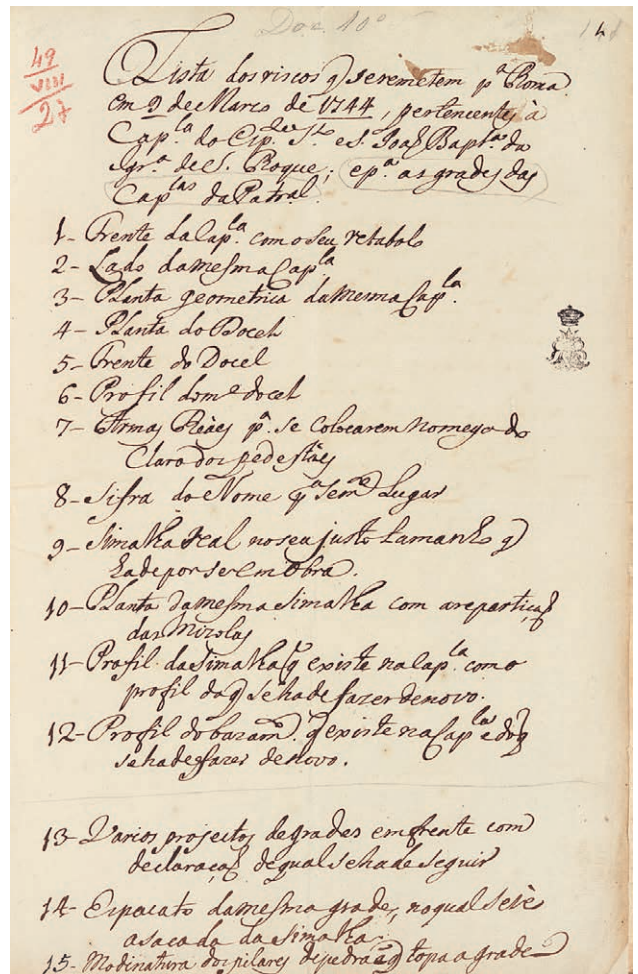 Doc. 10º
49
VIII
27
Lista dos riscos q̃ se remetem p.ª Roma
em 9 de Março de 1744, pertencentes à
Cap.la do Esp.to S.to e S. Joaõ Bapt.ta da
Igr.ª de S. Roque; e p.ª as grades das
Cap.las da Patral.
1- Frente da Cap.la com o seu retabolo
2- Lado da mesma Cap.la
3- Planta geometrica da mesma Cap.la
4- Planta do Docel
5- Frente do Docel
6- Profil do m.º docel
7- Armas Reaes p.ª se colocarem no mego do
Claro dos pedestaes
8- Sifra do Nome p.ª o m.º Lugar
9- Simalha Real no seu justo tamanho q̃
ha de por se em obra.
10- Planta da mesma Simalha com a repartiçaõ
das Mizolas
11- Profil da Simalha q̃ existe na Cap.la com o
profil da q̃ se ha de fazer de novo.
12- Profil do bazam.to q̃ existe na Cap.la e do q̃
se ha de fazer de novo.
13- Varios projectos de grades em frente com
declaraçaõ de qual se ha de seguir
14- Espacato da mesma grade, no qual se vè
a sacada da Simalha.
15- Modinatura dos pilares de pedra em q̃ topa a grade